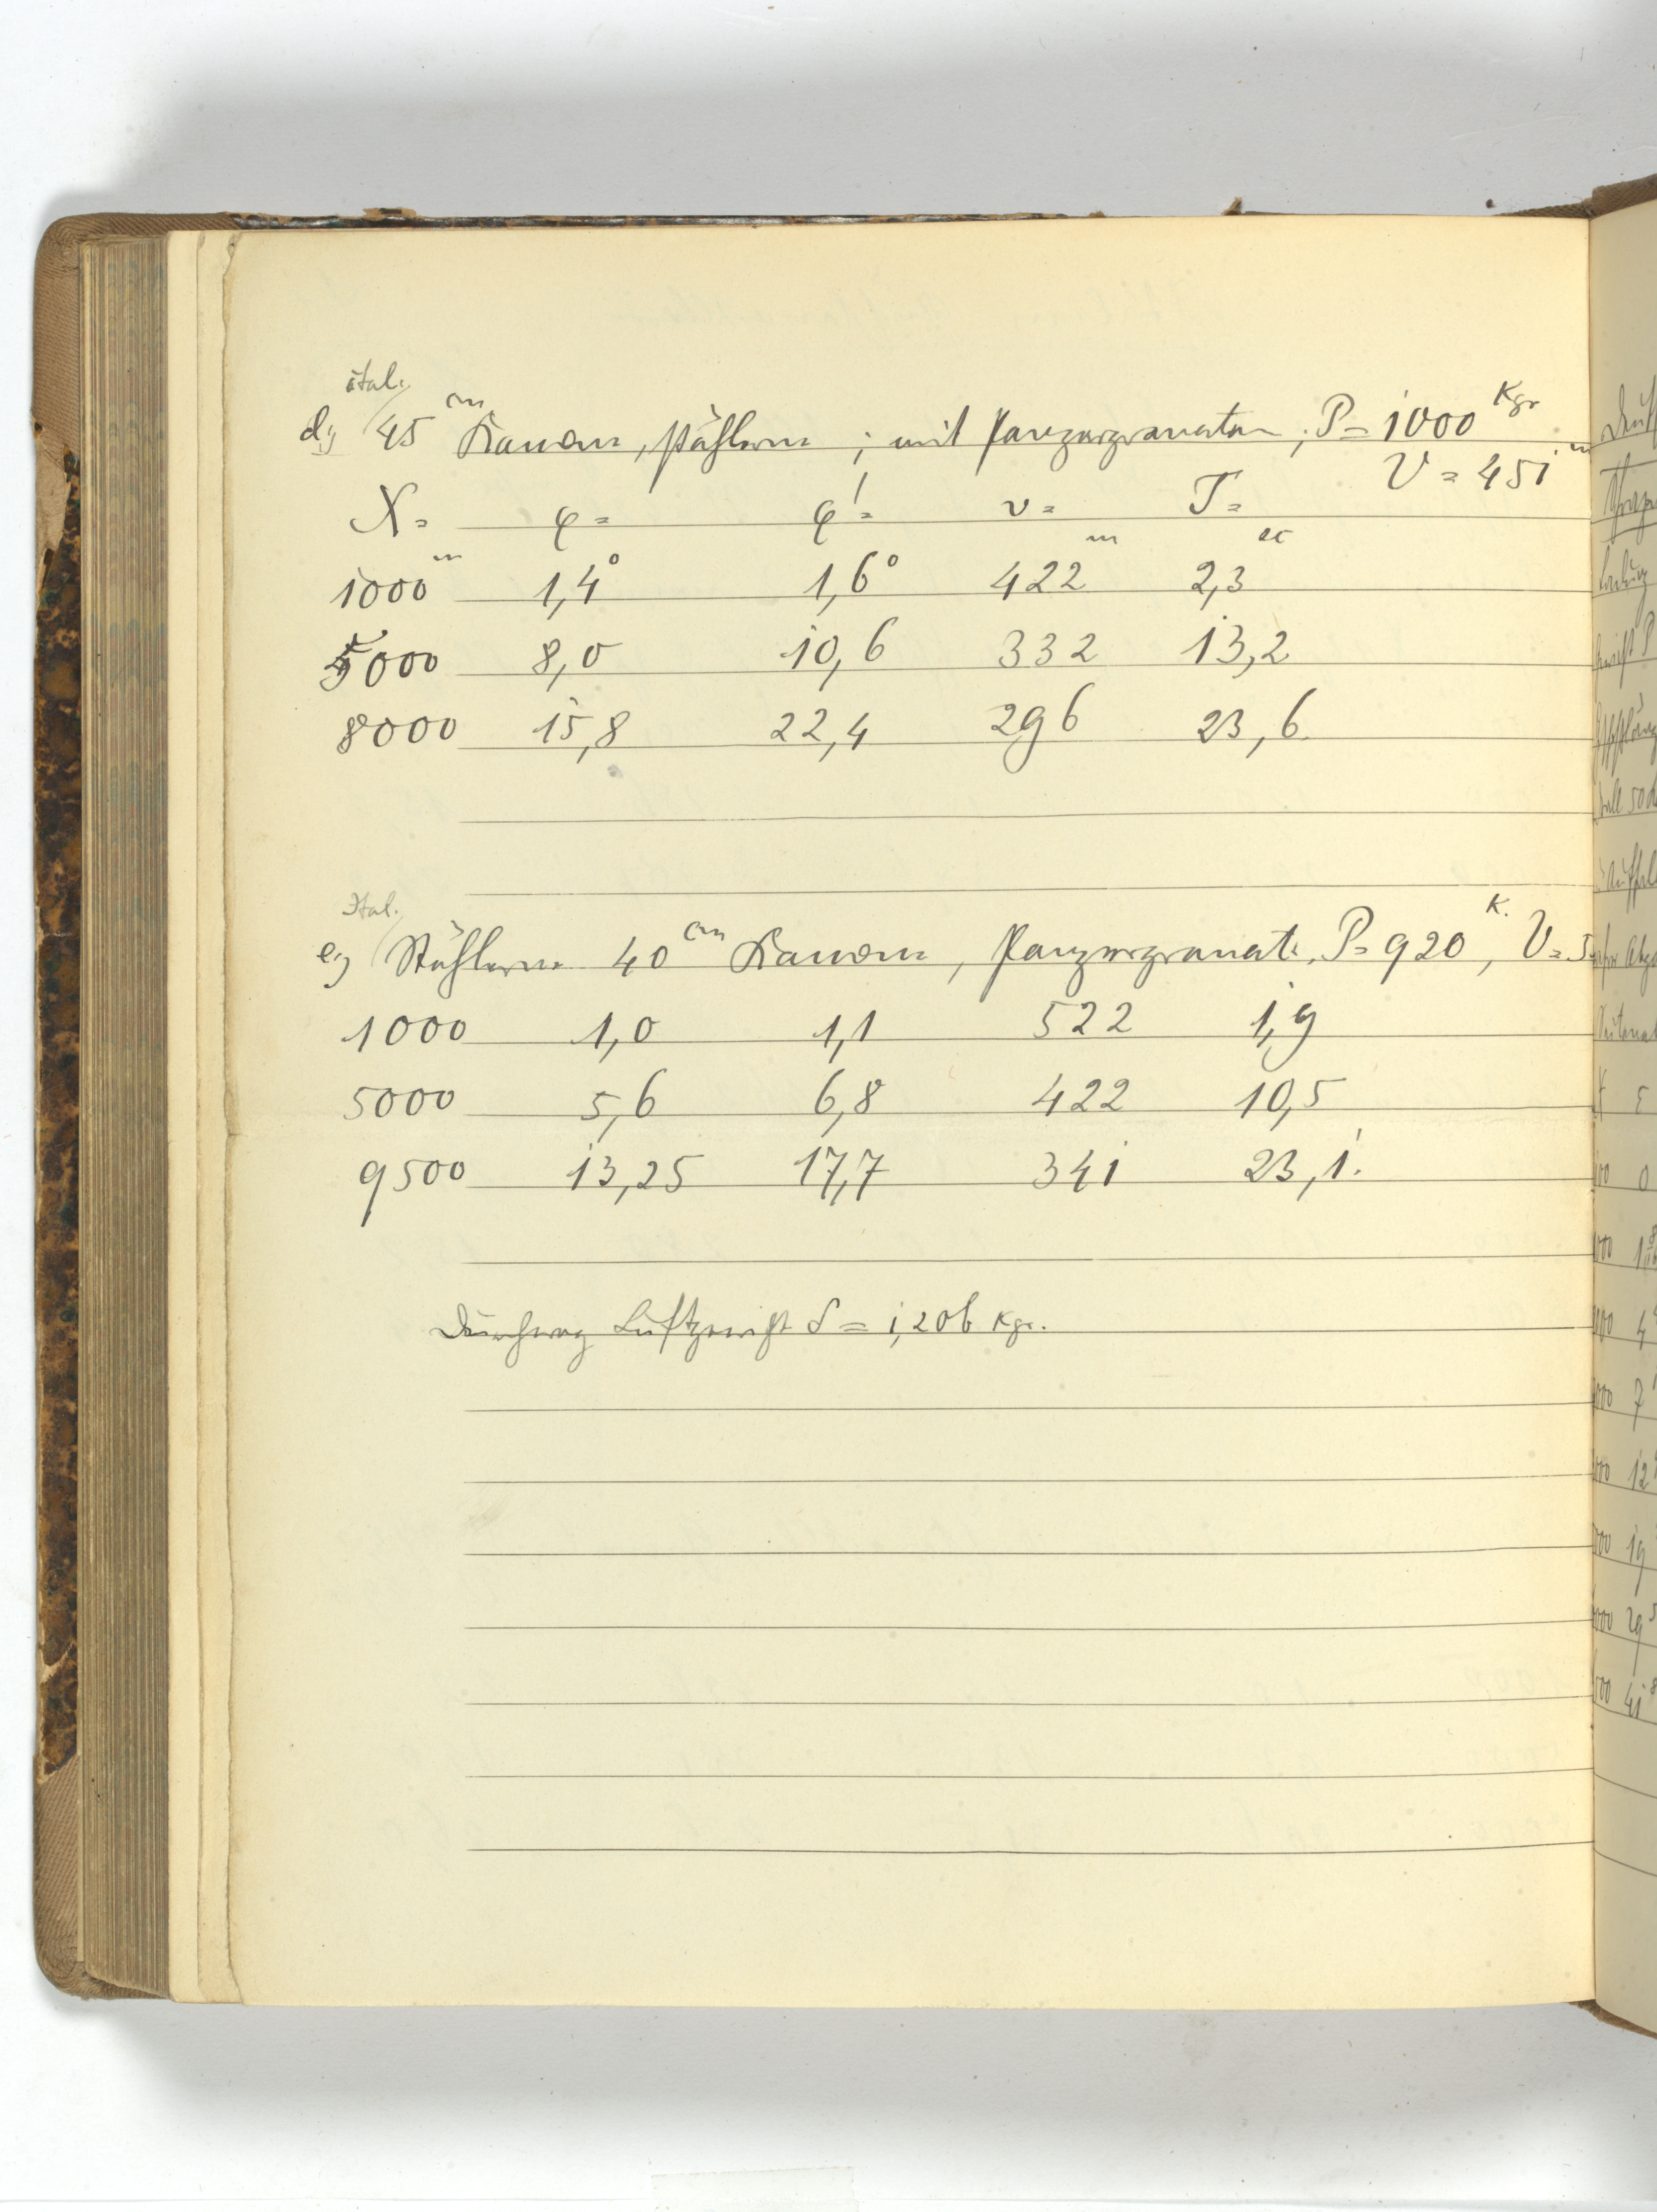 ital.
d, 45 cm Kanone, stählerne ; mit Panzergranaten, P = 1000 Kgr
V = 451 m
X = φ = φ' = v = T =
1000 m 1,4° 1,6° 422 m 2,3 sec
5000 8,0 10,6 332 13,2
8000 15,8 22,4 296 23,6
Ital.
e, Stählerne 40 cm Kanone, Panzergranate, P = 920 K., V = 5
1000 1,0 1,1 522 1,9
5000 5,6 6,8 422 10,5
9500 13,25 17,7 341 23,1.
Durchweg Luftgewicht δ = 1,206 Kgr.